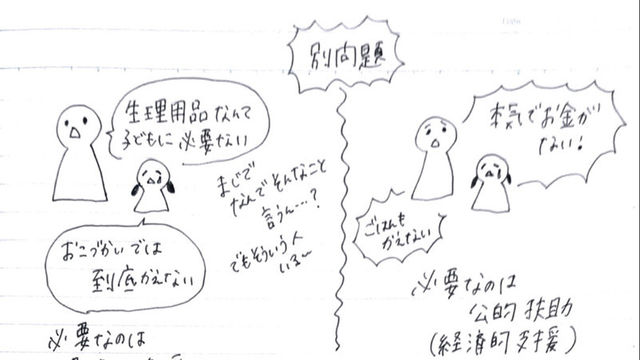 別問題
生理用品なんて
子どもに必要ない
まじで
なんでそんなこと
言うん…?
でもそういう人
いる〜
おこづかいでは
到底かえない
必要なのは
本気でお金が
ない!
ごはんも
かえない
必要なのは
公的扶助
(経済的支援)